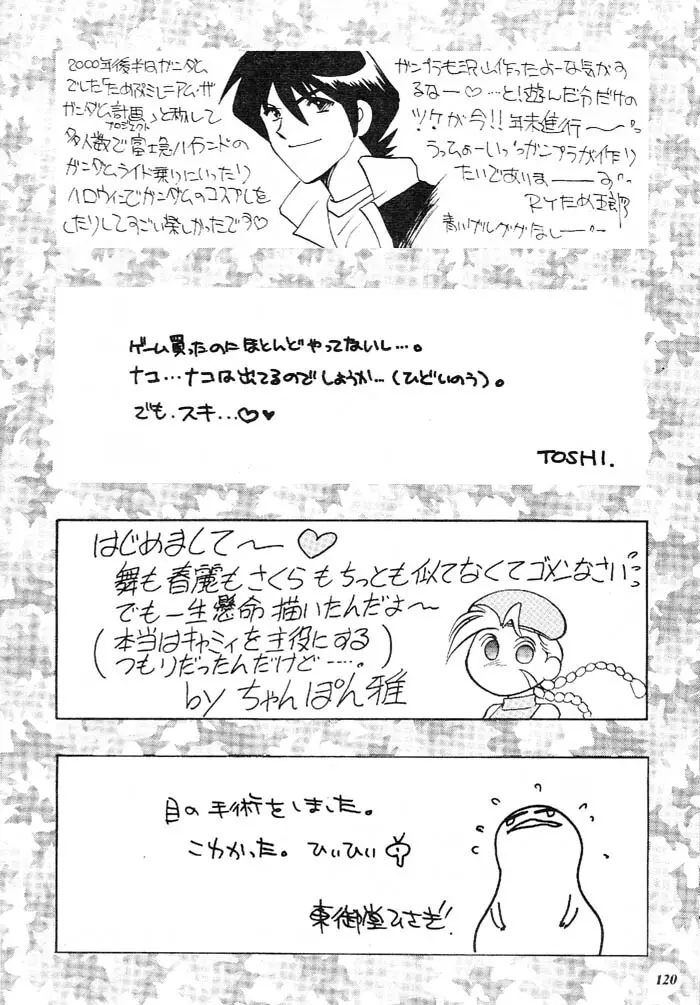 2000年後半はガンダム
でした「ため政ミレニアム・ザ・
ガンダム計画」と称して
プロジェクト
多人数で富士急ハイランドの
ガンダムライド乗りにいったり
ハロウィンでガンダムのコスプレをし
たりしてすごい楽しかったです♡
ガンプラも沢山作ったよーな気がす
るなー♡…と!遊んだ分だけの
ツケが今!!年末進行〜
うってぁーいっぱいガンプラが作り
たいであります
BYため五郎
青いゲルググなしー
ゲーム買ったのにほとんどやってないし…。
ナコ…ナコは出てるのでしょうか…(ひどいのう)。
でも、スキ…♡♥
TOSHI.
はじめまして〜♡
舞も春麗もさくらもちっとも似てなくてゴメンなさい
でも一生懸命描いたんだよ〜
(本当はキャミィを主役にする
つもりだったんだけど……。)
by ちゃんぽん雅
目の手術をしました。
こわかった。ひぃひぃ
東御堂ひさぎ!
120